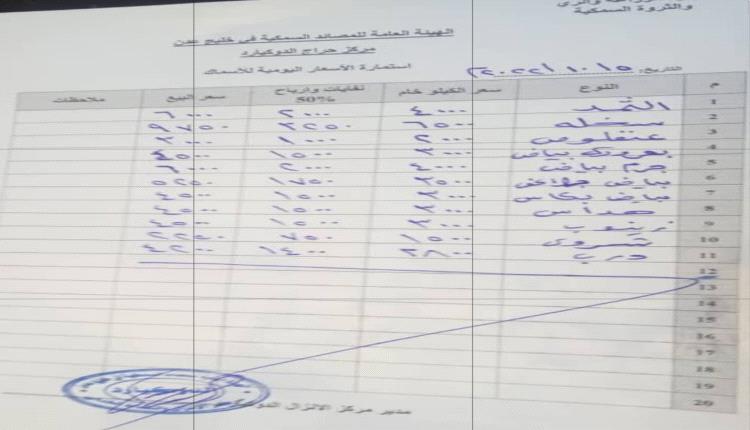 والثروة السمكية
الهيئة العامة للمصائد السمكية في خليج عدن
مركز حراج الدوكيارد
استمارة الأسعار اليومية للأسماك
التاريخ: ٢٠٢٢/١٠/١٥
م النوع سعر الكيلو خام نفايات وارباح 50% سعر البيع ملاحظات
1 الثمد ٤٠٠٠ ٢٠٠٠ ٦٠٠٠
2 سخله ٦٥٠٠ ٣٢٥٠ ٩٧٥٠
3 ٢٠٠٠ ١٠٠٠ ٣٠٠٠
4 بياض ٣٠٠٠ ١٥٠٠ ٤٥٠٠
5 بياض ٤٠٠٠ ٢٠٠٠ ٦٠٠٠
6 بياض ٣٥٠٠ ١٧٥٠ ٥٢٥٠
7 بياض ٣٠٠٠ ١٥٠٠ ٤٥٠٠
8 ٣٠٠٠ ١٥٠٠ ٤٥٠٠
9 زينوب ٣٠٠٠ ١٥٠٠ ٤٥٠٠
10 ١٥٠٠ ٧٥٠
11 درب ٢٨٠٠ ١٤٠٠ ٤٢٠٠
12
13
14
15
16
17
18
19
20
مدير مركز الانزال